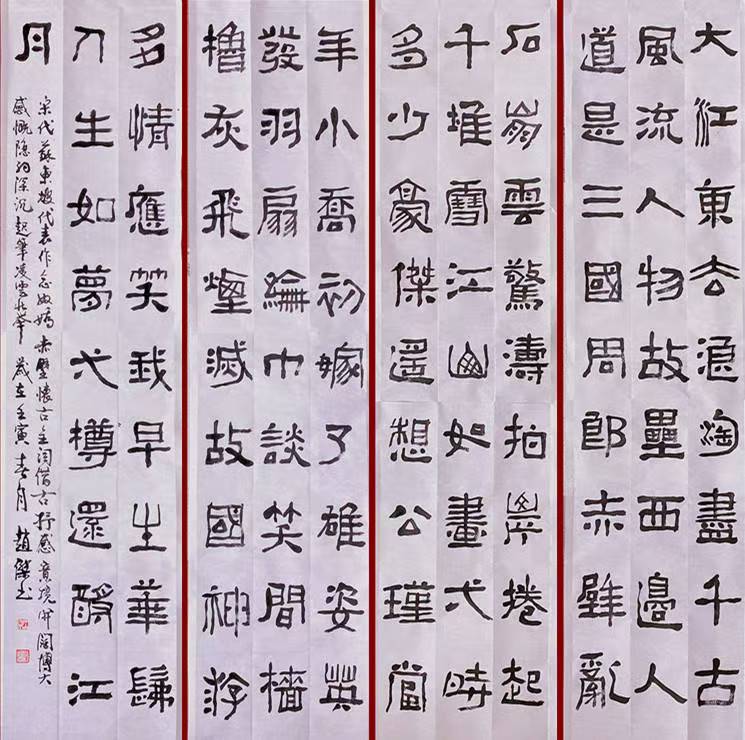 大江東去浪淘盡千古
風流人物故壘西邊人
道是三國周郎赤壁亂
石崩雲驚濤拍岸捲起
千堆雪江山如畫弌時
多少豪傑遙想公瑾當
年小喬初嫁了雄姿英
發羽扇綸巾談笑間檣
櫓灰飛煙滅故國神游
多情應笑我早生華髮
人生如夢弌樽還酹江
月
宋代蘇東坡代表作念奴嬌赤壁懷古主詞借古抒感意境開闊博大
感慨隐約深沉起筆凌雲歲在壬寅春月趙傑書